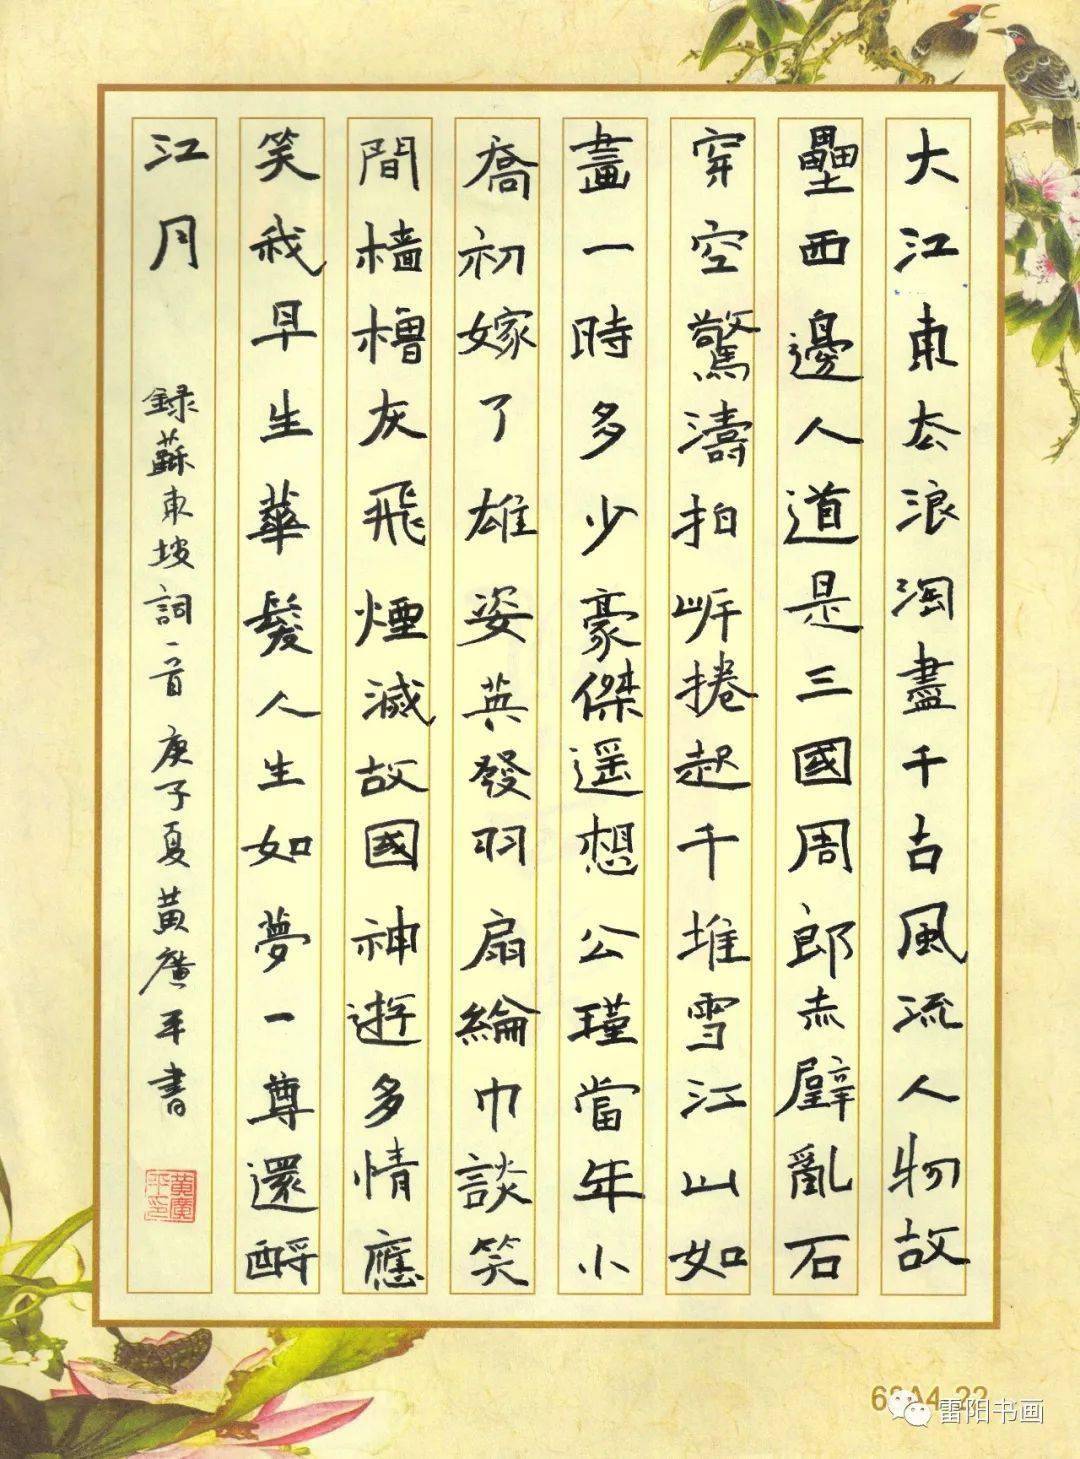 大江東去浪淘盡千古風流人物故
壘西邊人道是三國周郎赤壁亂石
穿空驚濤拍岸捲起千堆雪江山如
畫一時多少豪傑遥想公瑾當年小
喬初嫁了雄姿英發羽扇綸巾談笑
間檣櫓灰飛煙滅故國神遊多情應
笑我早生華髮人生如夢一尊還酹
江月
録蘇東坡詞一首 庚子夏黃廣平書
黃廣平印
雷阳书画